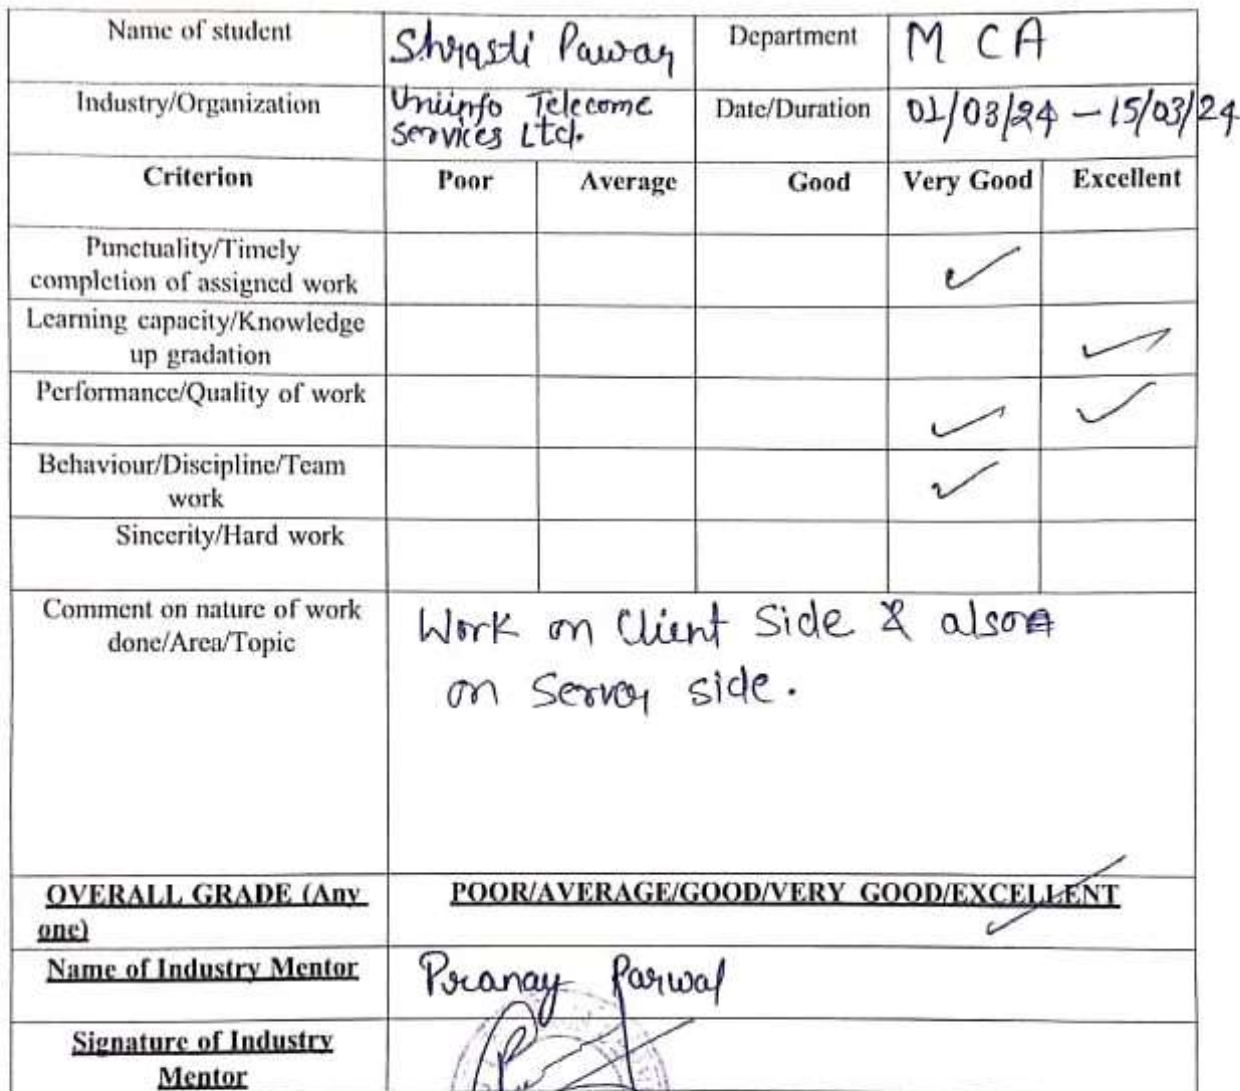 Name of student Shrasti Pawar Department M CA
Industry/Organization Uniinfo Telecome Date/Duration 01/03/24 – 15/03/24
Services Ltd.
Criterion Poor Average Good Very Good Excellent
Punctuality/Timely ✓
completion of assigned work
Learning capacity/Knowledge ✓
up gradation
Performance/Quality of work ✓ ✓
Behaviour/Discipline/Team ✓
work
Sincerity/Hard work
Comment on nature of work Work on Client Side & also
done/Area/Topic on Server side.
OVERALL GRADE (Any POOR/AVERAGE/GOOD/VERY GOOD/EXCELLENT ✓
one)
Name of Industry Mentor Pranay Parwal
Signature of Industry
Mentor